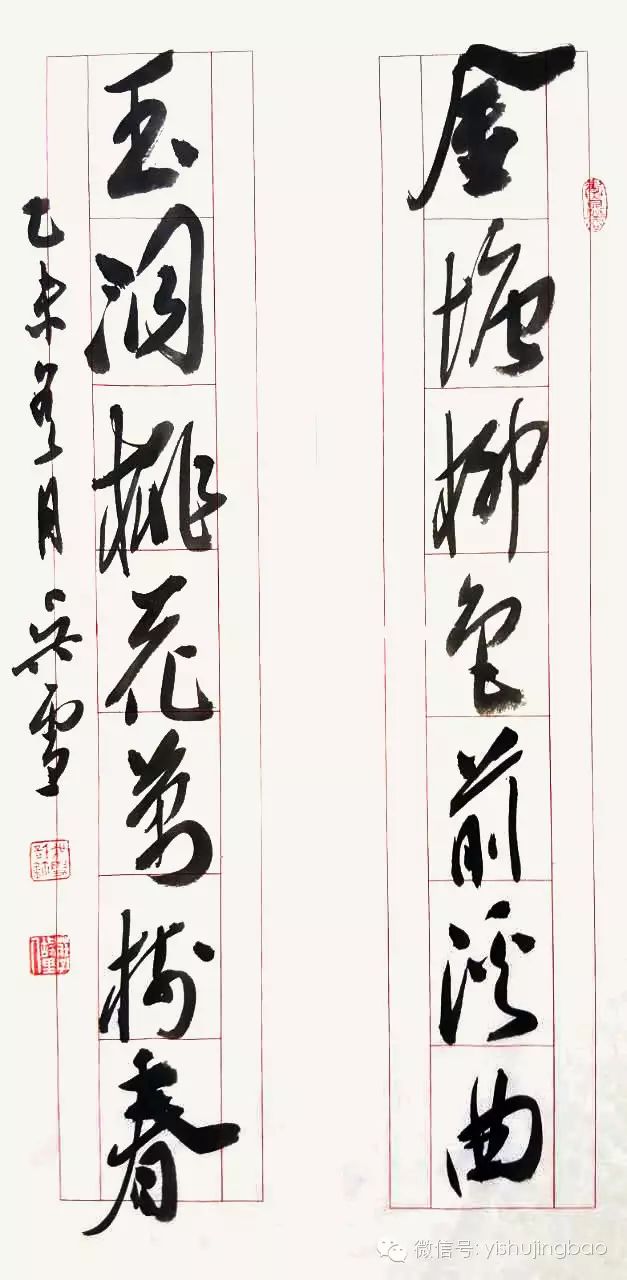 金塘柳色前溪曲
玉洞桃花万树春
乙未冬月
吴雪
微信号: yishujingbao